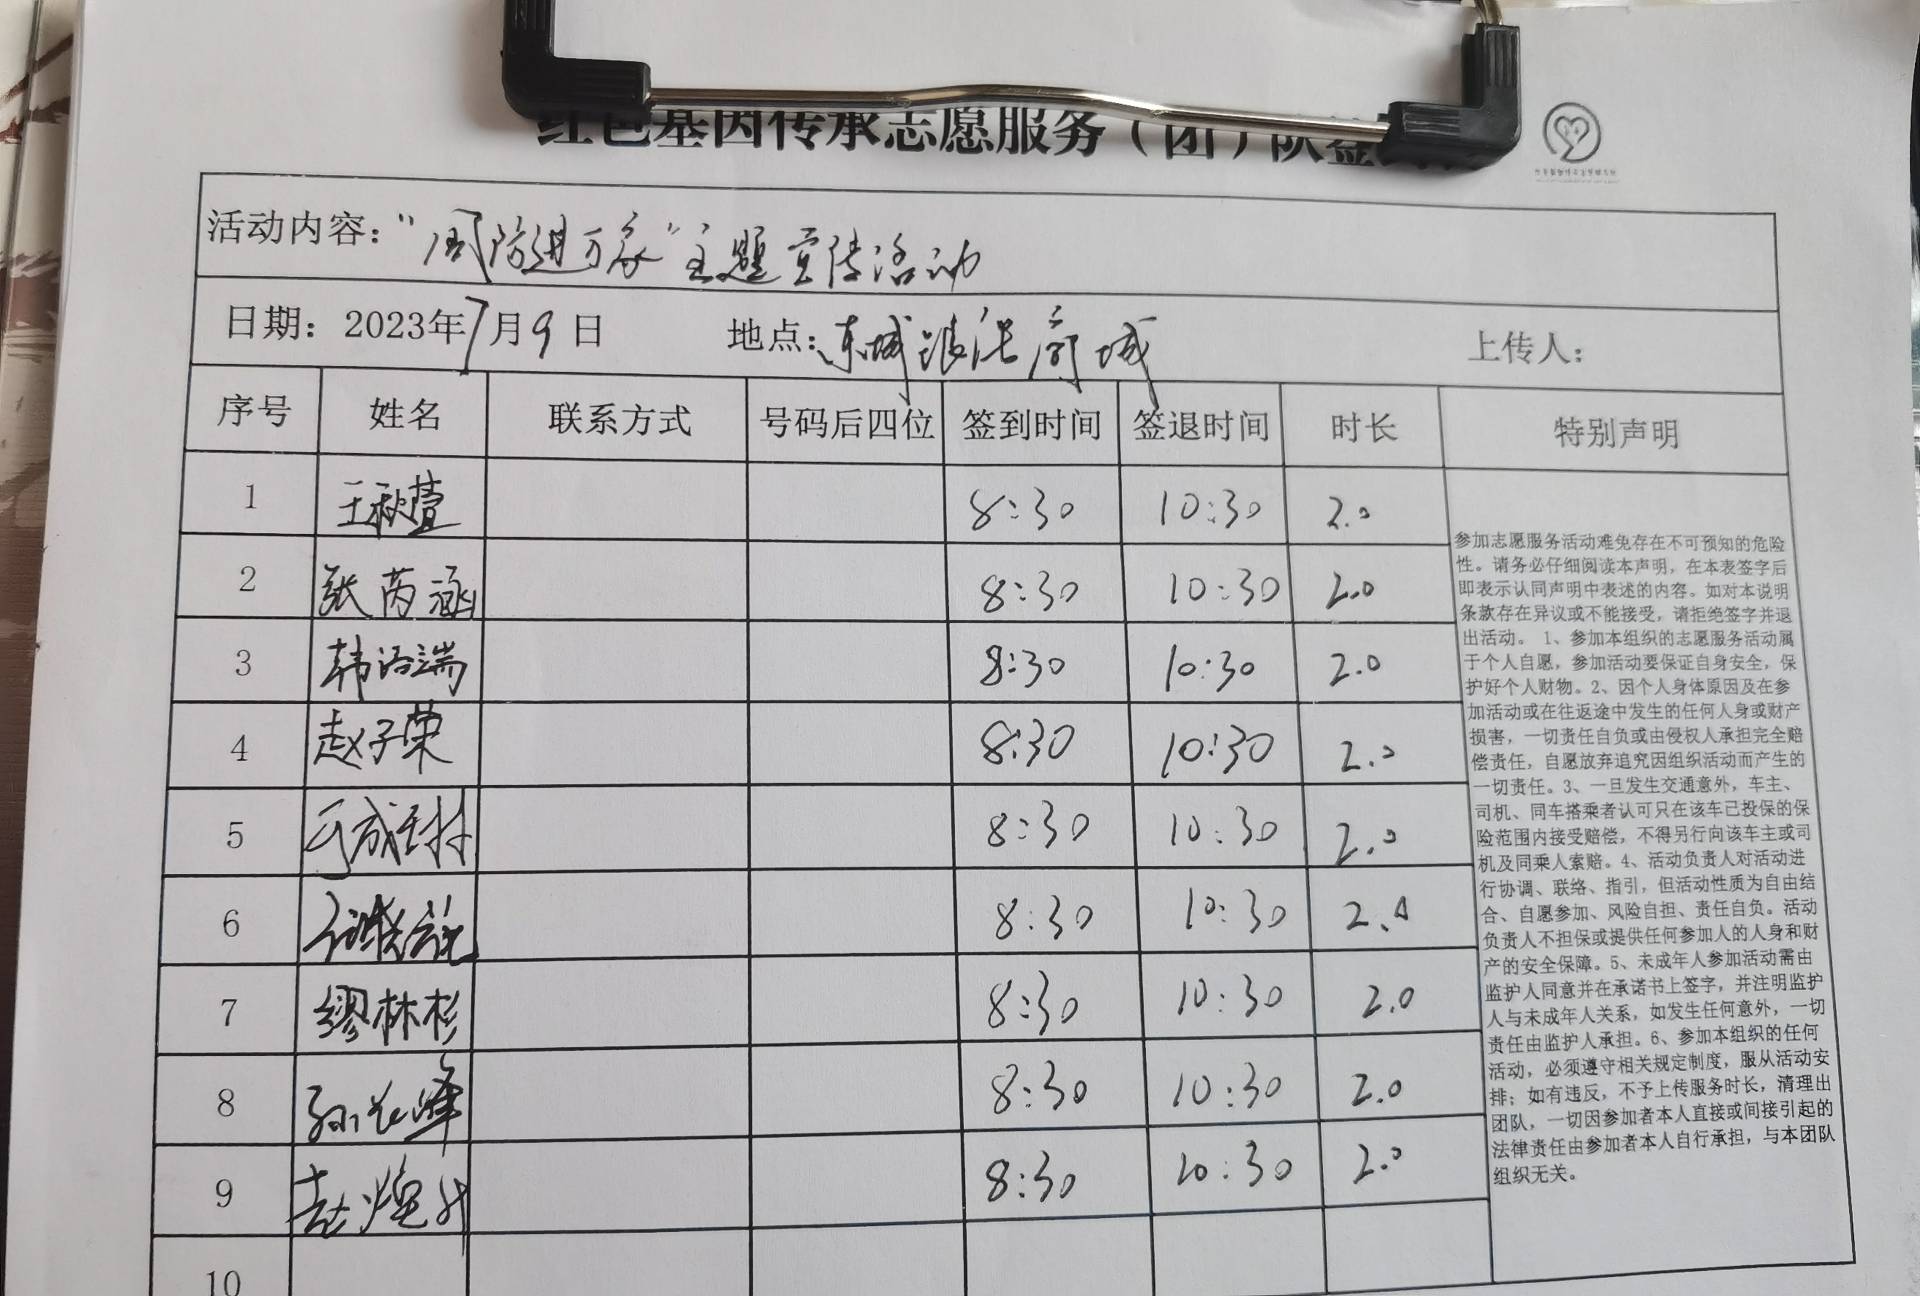 红色基因传承志愿服务（团）队签
活动内容："国防进万家"主题宣传活动
日期：2023年7月9日 地点：东城 商城 上传人：
序号 姓名 联系方式 号码后四位 签到时间 签退时间 时长 特别声明
1 王秋萱 8:30 10:30 2.0
2 张芮涵 8:30 10:30 2.0
3 韩 端 8:30 10:30 2.0
4 赵子荣 8:30 10:30 2.0
5 8:30 10:30 2.0
6 8:30 10:30 2.0
7 缪林杉 8:30 10:30 2.0
8 孙 峰 8:30 10:30 2.0
9 8:30 10:30 2.0
10
参加志愿服务活动难免存在不可预知的危险
性。请务必仔细阅读本声明，在本表签字后
即表示认同声明中表述的内容。如对本说明
条款存在异议或不能接受，请拒绝签字并退
出活动。1、参加本组织的志愿服务活动属
于个人自愿，参加活动要保证自身安全，保
护好个人财物。2、因个人身体原因及在参
加活动或在往返途中发生的任何人身或财产
损害，一切责任自负或由侵权人承担完全赔
偿责任，自愿放弃追究因组织活动而产生的
一切责任。3、一旦发生交通意外，车主、
司机、同车搭乘者认可只在该车已投保的保
险范围内接受赔偿，不得另行向该车主或司
机及同乘人索赔。4、活动负责人对活动进
行协调、联络、指引，但活动性质为自由结
合、自愿参加、风险自担、责任自负。活动
负责人不担保或提供任何参加人的人身和财
产的安全保障。5、未成年人参加活动需由
监护人同意并在承诺书上签字，并注明监护
人与未成年人关系，如发生任何意外，一切
责任由监护人承担。6、参加本组织的任何
活动，必须遵守相关规定制度，服从活动安
排；如有违反，不予上传服务时长，清理出
团队，一切因参加者本人直接或间接引起的
法律责任由参加者本人自行承担，与本团队
组织无关。